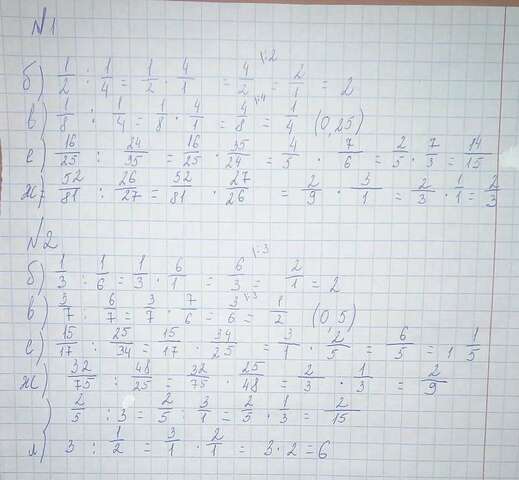 №1
б) 1/2 : 1/4 = 1/2 · 4/1 = 4/2 \:2 = 2/1 = 2
в) 1/8 : 1/4 = 1/8 · 4/1 = 4/8 \:4 = 1/4 (0,25)
е) 16/25 : 24/35 = 16/25 · 35/24 = 4/5 · 7/6 = 2/5 · 7/3 = 14/15
ж) 52/81 : 26/27 = 52/81 · 27/26 = 2/9 · 3/1 = 2/3 · 1/1 = 2/3
№2
б) 1/3 : 1/6 = 1/3 · 6/1 = 6/3 \:3 = 2/1 = 2
в) 3/7 : 6/7 = 3/7 · 7/6 = 3/6 \:3 = 1/2 (0,5)
е) 15/17 : 25/34 = 15/17 · 34/25 = 3/1 · 2/5 = 6/5 = 1 1/5
ж) 32/75 : 48/25 = 32/75 · 25/48 = 2/3 · 1/3 = 2/9
) 2/5 : 3 = 2/5 : 3/1 = 2/5 · 1/3 = 2/15
м) 3 : 1/2 = 3/1 · 2/1 = 3 · 2 = 6